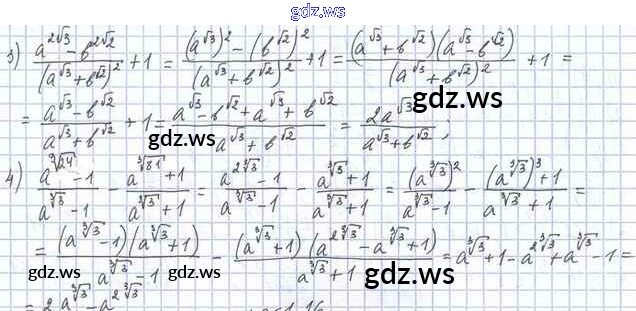 gdz.ws
3) (a^{2√3} - b^{2√2})/(a^{√3} + b^{√2})^2 + 1 = ((a^{√3})^2 - (b^{√2})^2)/(a^{√3} + b^{√2})^2 + 1 = ((a^{√3} + b^{√2})(a^{√3} - b^{√2}))/(a^{√3} + b^{√2})^2 + 1 =
gdz.ws
= (a^{√3} - b^{√2})/(a^{√3} + b^{√2}) + 1 = (a^{√3} - b^{√2} + a^{√3} + b^{√2})/(a^{√3} + b^{√2}) = 2a^{√3}/(a^{√3} + b^{√2});
gdz.ws gdz.ws
4) (a^{∛24} - 1)/(a^{∛3} - 1) - (a^{∛81} + 1)/(a^{∛3} + 1) = (a^{2∛3} - 1)/(a^{∛3} - 1) - (a^{∛3} + 1)/(a^{∛3} + 1) = (a^{∛3})^2/(a^{∛3} - 1) - ((a^{∛3})^3 + 1)/(a^{∛3} + 1) =
= ((a^{∛3} - 1)(a^{∛3} + 1))/(a^{∛3} - 1) - ((a^{∛3} + 1)(a^{2∛3} - a^{∛3} + 1))/(a^{∛3} + 1) = a^{∛3} + 1 - a^{2∛3} + a^{∛3} - 1 =
gdz.ws gdz.ws gdz.ws
= 2a^{∛3} - a^{2∛3}